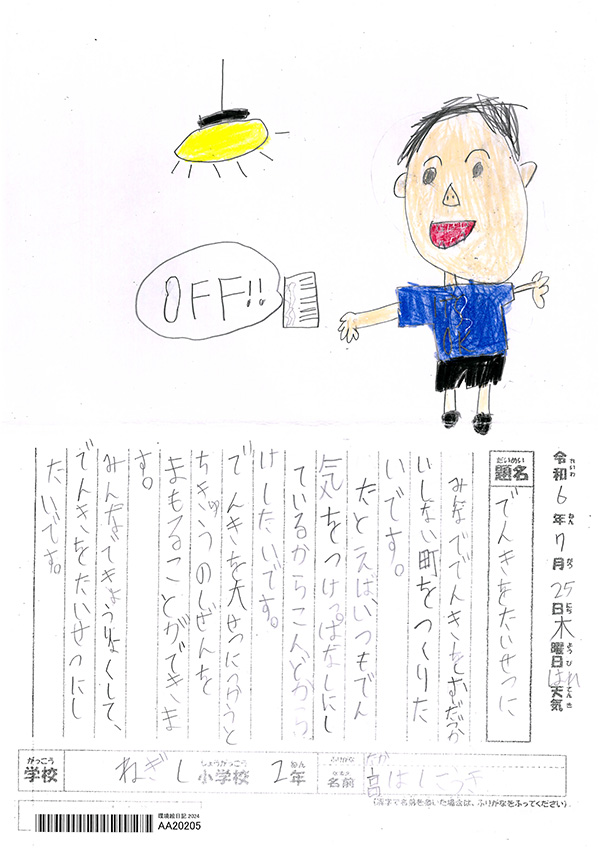 OFF!!
令和6年7月25日木曜日はれ天気
題名 でんきをたいせつに
みんなででんきをむだづか
いしない町をつくりた
いです。
たとえばいつもでん
気をつけっぱなしにし
ているからこんどから
けしたいです。
でんきを大せつにつかうと
ちきゅうのしぜんを
まもることができま
す。
みんなできょうりょくして、
でんきをたいせつにし
たいです。
学校 ねぎし小学校 2年 名前 高はしこうき
(漢字で名前を書いた場合は、ふりがなをふってください)
環境絵日記 2024
AA20205